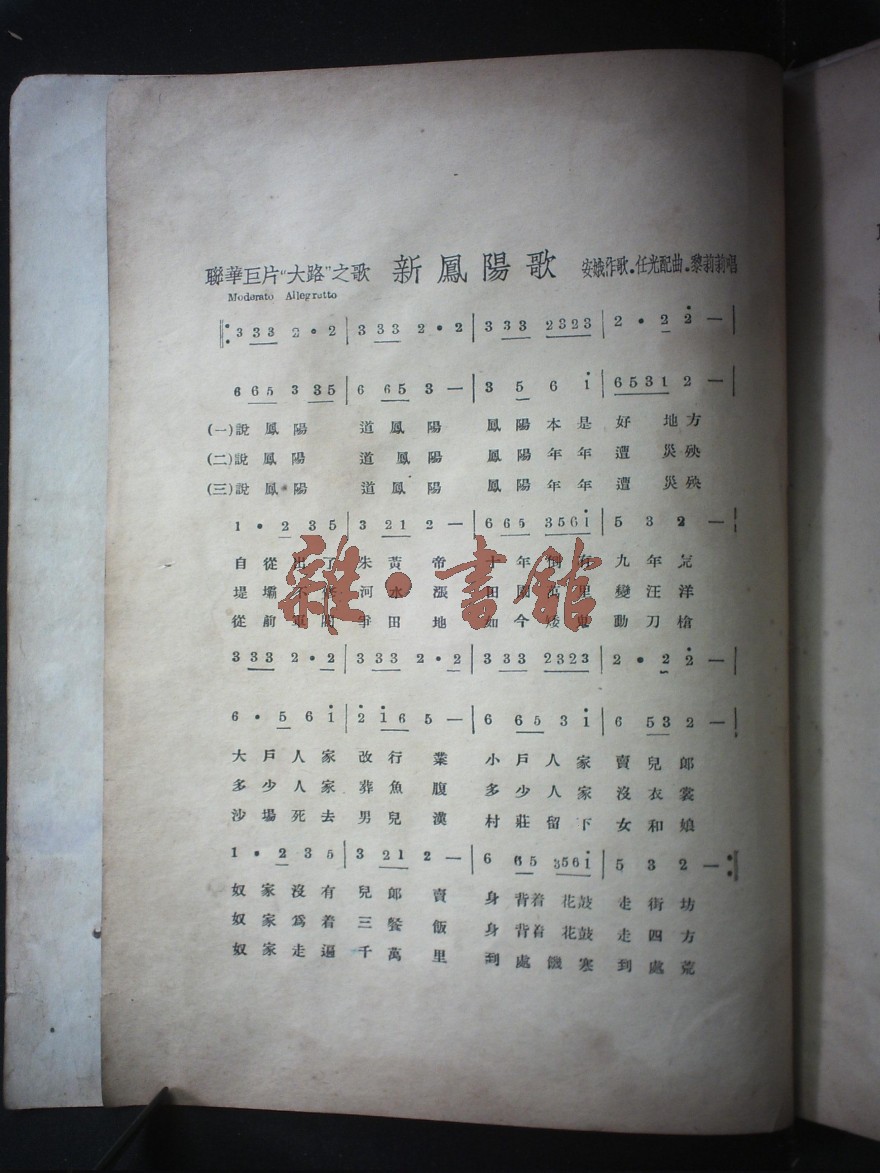 聯華巨片“大路”之歌 新鳳陽歌 安娥作歌．任光配曲．黎莉莉唱
Moderato Allegrutto
‖: 3 3 3 2 • 2 | 3 3 3 2 • 2 | 3 3 3 2 3 2 3 | 2 • 2 2̇ — |
6 6 5 3 3 5 | 6 6 5 3 — | 3 5 6 i | 6 5 3 1 2 — |
(一)說鳳陽 道鳳陽 鳳陽本是好地方
(二)說鳳陽 道鳳陽 鳳陽年年遭災殃
(三)說鳳陽 道鳳陽 鳳陽年年遭災殃
1 • 2 3 5 | 3 2 1 2 — | 6 6 5 3 5 6 i | 5 3 2 — |
自從出了朱黃帝 十年倒有九年荒
堤壩不修河水漲 田園萬里變汪洋
從前軍閥爭田地 如今矮鬼動刀槍
3 3 3 2 • 2 | 3 3 3 2 • 2 | 3 3 3 2 3 2 3 | 2 • 2 2̇ — |
6 • 5 6 i | 2̇ i 6 5 — | 6 6 5 3 i | 6 5 3 2 — |
大戶人家改行業 小戶人家賣兒郎
多少人家葬魚腹 多少人家沒衣裳
沙場死去男兒漢 村莊留下女和娘
1 • 2 3 5 | 3 2 1 2 — | 6 6 5 3 5 6 i | 5 3 2 — :‖
奴家沒有兒郎賣 身背着花鼓走街坊
奴家爲着三餐飯 身背着花鼓走四方
奴家走遍千萬里 到處饑寒到處荒
雜·書館